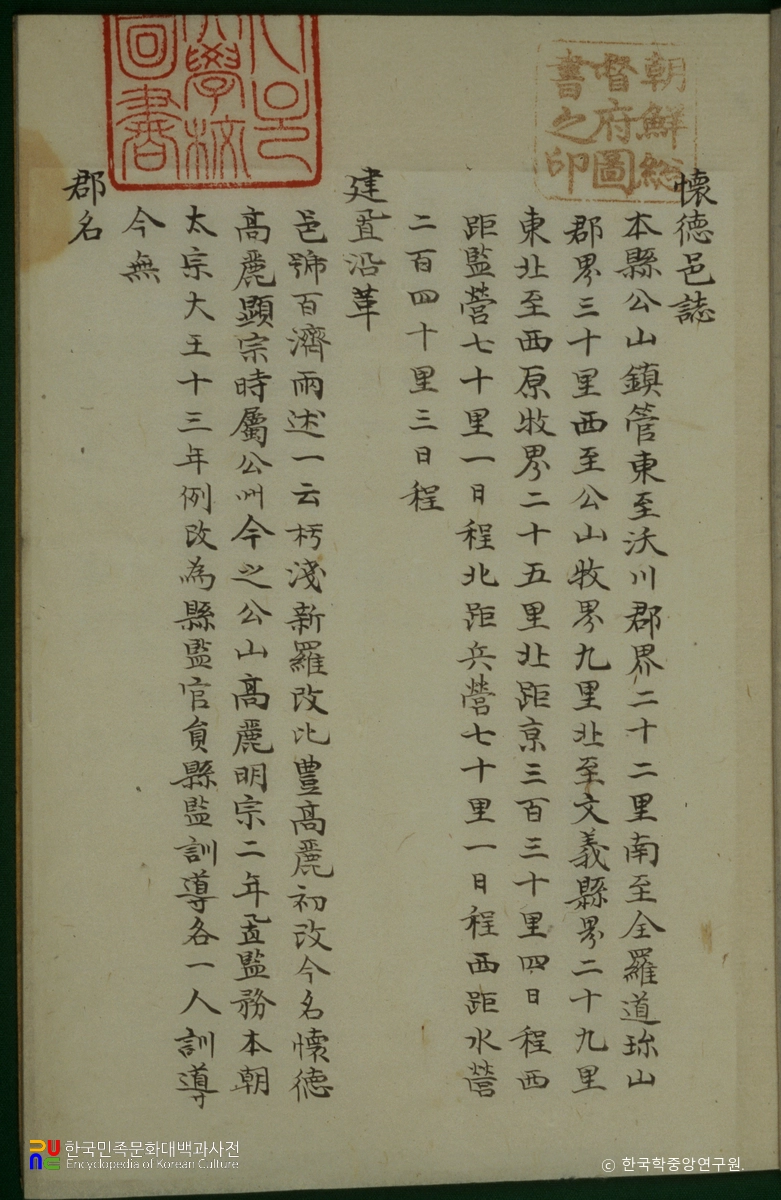 懷德邑誌
本縣公山鎮管東至沃川郡界二十二里南至全羅道珎山
郡界三十里西至公山牧界九里北至文義縣界二十九里
東北至西原牧界二十五里北距京三百三十里四日程西
距監營七十里一日程北距兵營七十里一日程西距水營
二百四十里三日程
建置沿革
邑號百濟雨述一云朽淺新羅改比豊高麗初改今名懷德
高麗顯宗時屬公州今之公山高麗明宗二年置監務本朝
太宗大王十三年例改為縣監官員縣監訓導各一人訓導
今無
郡名
朝鮮総
督府圖
書之印
學校
圖書
한국민족문화대백과사전
Encyclopedia of Korean Culture
ⓒ 한국학중앙연구원.